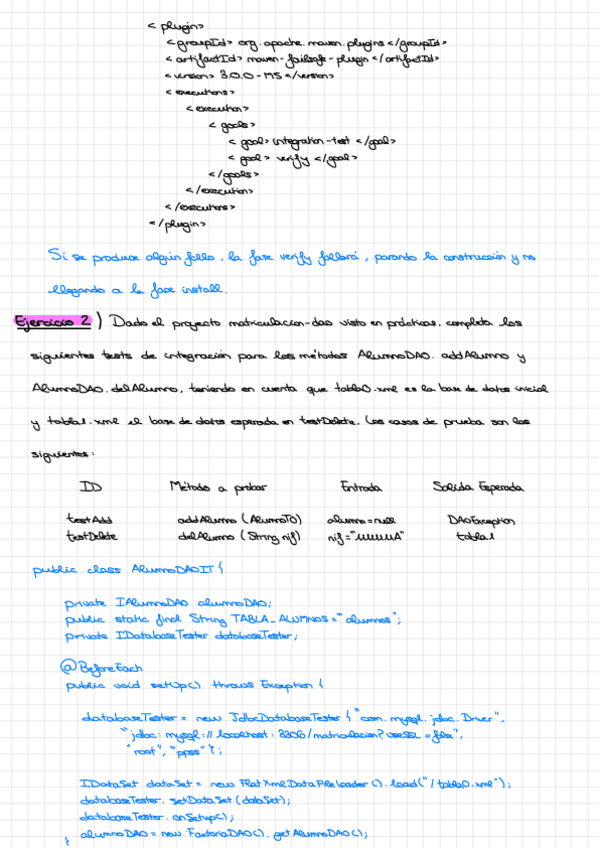 <plugin>
<groupId> org.apache.maven.plugins </groupId>
<artifactId> maven-failsafe-plugin </artifactId>
<version> 3.0.0-M5 </version>
<executions>
<execution>
<goals>
<goal> integration-test </goal>
<goal> verify </goal>
</goals>
</execution>
</executions>
</plugin>
Si se produce algún fallo, la fase verify fallará, parando la construcción y no
llegando a la fase install.
Ejercicio 2) Dado el proyecto matriculacion-dao visto en prácticas, completa los
siguientes tests de integración para los métodos AlumnoDAO.addAlumno y
AlumnoDAO.delAlumno, teniendo en cuenta que tabla0.xml es la base de datos inicial
y tabla1.xml el base de datos esperada en testDelete. Los casos de prueba son los
siguientes:
ID Método a probar Entrada Salida Esperada
testAdd addAlumno (AlumnoTO) alumno=null DAOException
testDelete delAlumno (String nif) tabla1
public class AlumnoDAOIT {
private IAlumnoDAO alumnoDAO;
public static final String TABLA_ALUMNOS="alumnos";
private IDatabaseTester databaseTester;
@BeforeEach
public void setUp() throws Exception {
databaseTester = new JdbcDatabaseTester ("com.mysql.jdbc.Driver",
"jdbc:mysql://localhost:3306/matriculacion?useSSL=false",
"root", "ppss");
IDataSet dataSet = new FlatXmlDataFileLoader().load("/tabla0.xml");
databaseTester.setDataSet(dataSet);
databaseTester.onSetup();
alumnoDAO = new FactoriaDAO().getAlumnoDAO();
}